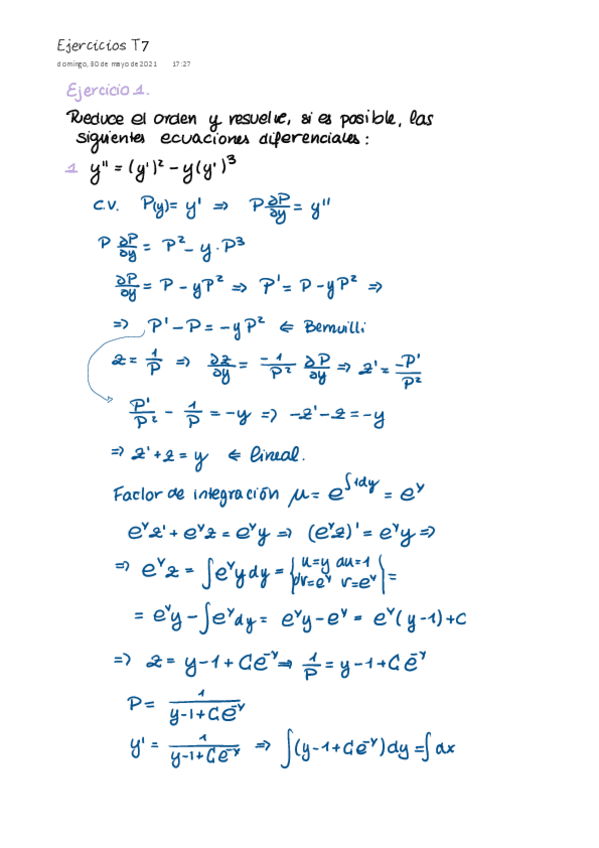 Ejercicios T7
domingo, 30 de mayo de 2021 17:27
Ejercicio 1.
Reduce el orden y resuelve, si es posible, las
siguientes ecuaciones diferenciales:
1 y'' = (y')² - y(y')³
C.V. P(y) = y' ⇒ P ∂P/∂y = y''
P ∂P/∂y = P² - y·P³
∂P/∂y = P - yP² ⇒ P' = P - yP² ⇒
⇒ P' - P = -yP² ⇐ Bernuilli
z = 1/P ⇒ ∂z/∂y = -1/P² ∂P/∂y ⇒ z' = -P'/P²
P'/P² - 1/P = -y ⇒ -z' - z = -y
⇒ z' + z = y ⇐ lineal.
Factor de integración μ = e^∫1dy = e^y
e^y z' + e^y z = e^y y ⇒ (e^y z)' = e^y y ⇒
⇒ e^y z = ∫e^y y dy = {u=y du=1
dv=e^y v=e^y} =
= e^y y - ∫e^y dy = e^y y - e^y = e^y(y-1)+C
⇒ z = y-1+Ce^-y ⇒ 1/P = y-1+Ce^-y
P = 1/(y-1+Ce^-y)
y' = 1/(y-1+Ce^-y) ⇒ ∫(y-1+Ce^-y)dy = ∫dx